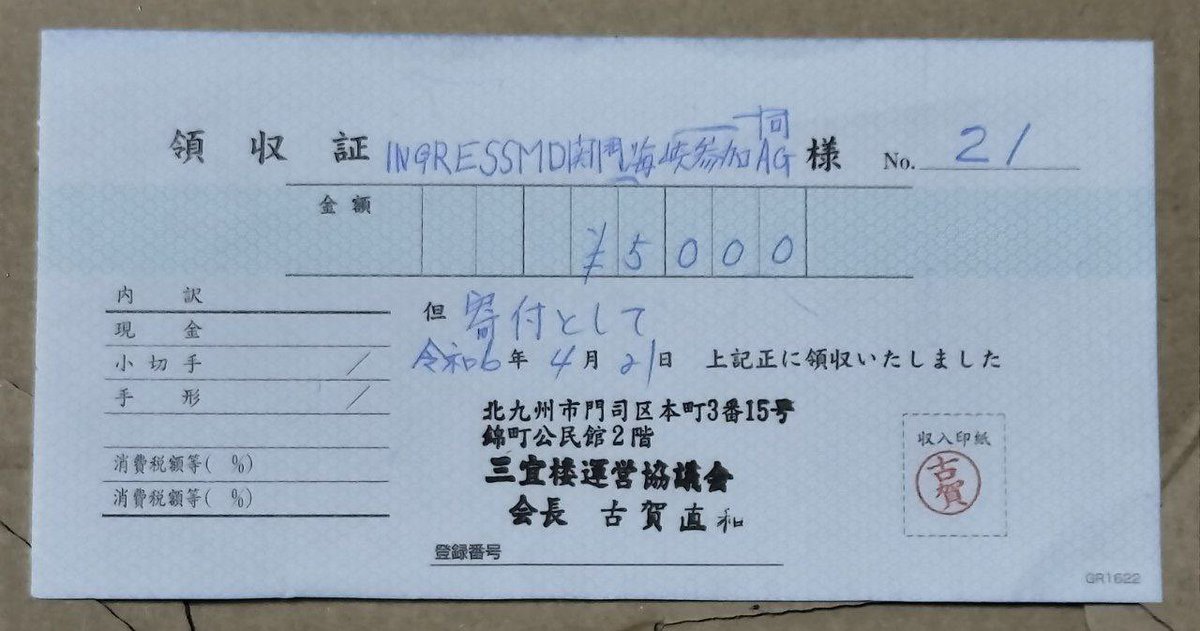 領収証 INGRESSMD関門海峡参加AG一同 様 No. 21
金額 ¥5000
内訳
現金
小切手 /
手形 /
消費税額等( %)
消費税額等( %)
但 寄付として
令和6年 4月 21日 上記正に領収いたしました
北九州市門司区本町3番15号
錦町公民館2階
三宜楼運営協議会
会長 古賀直和
収入印紙
古賀
登録番号
GR1622